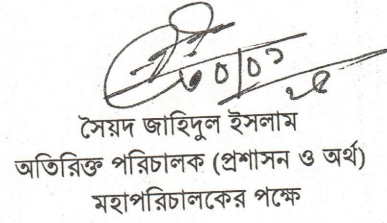 সৈয়দ জাহিদুল ইসলাম
অতিরিক্ত পরিচালক (প্রশাসন ও অর্থ)
মহাপরিচালকের পক্ষে